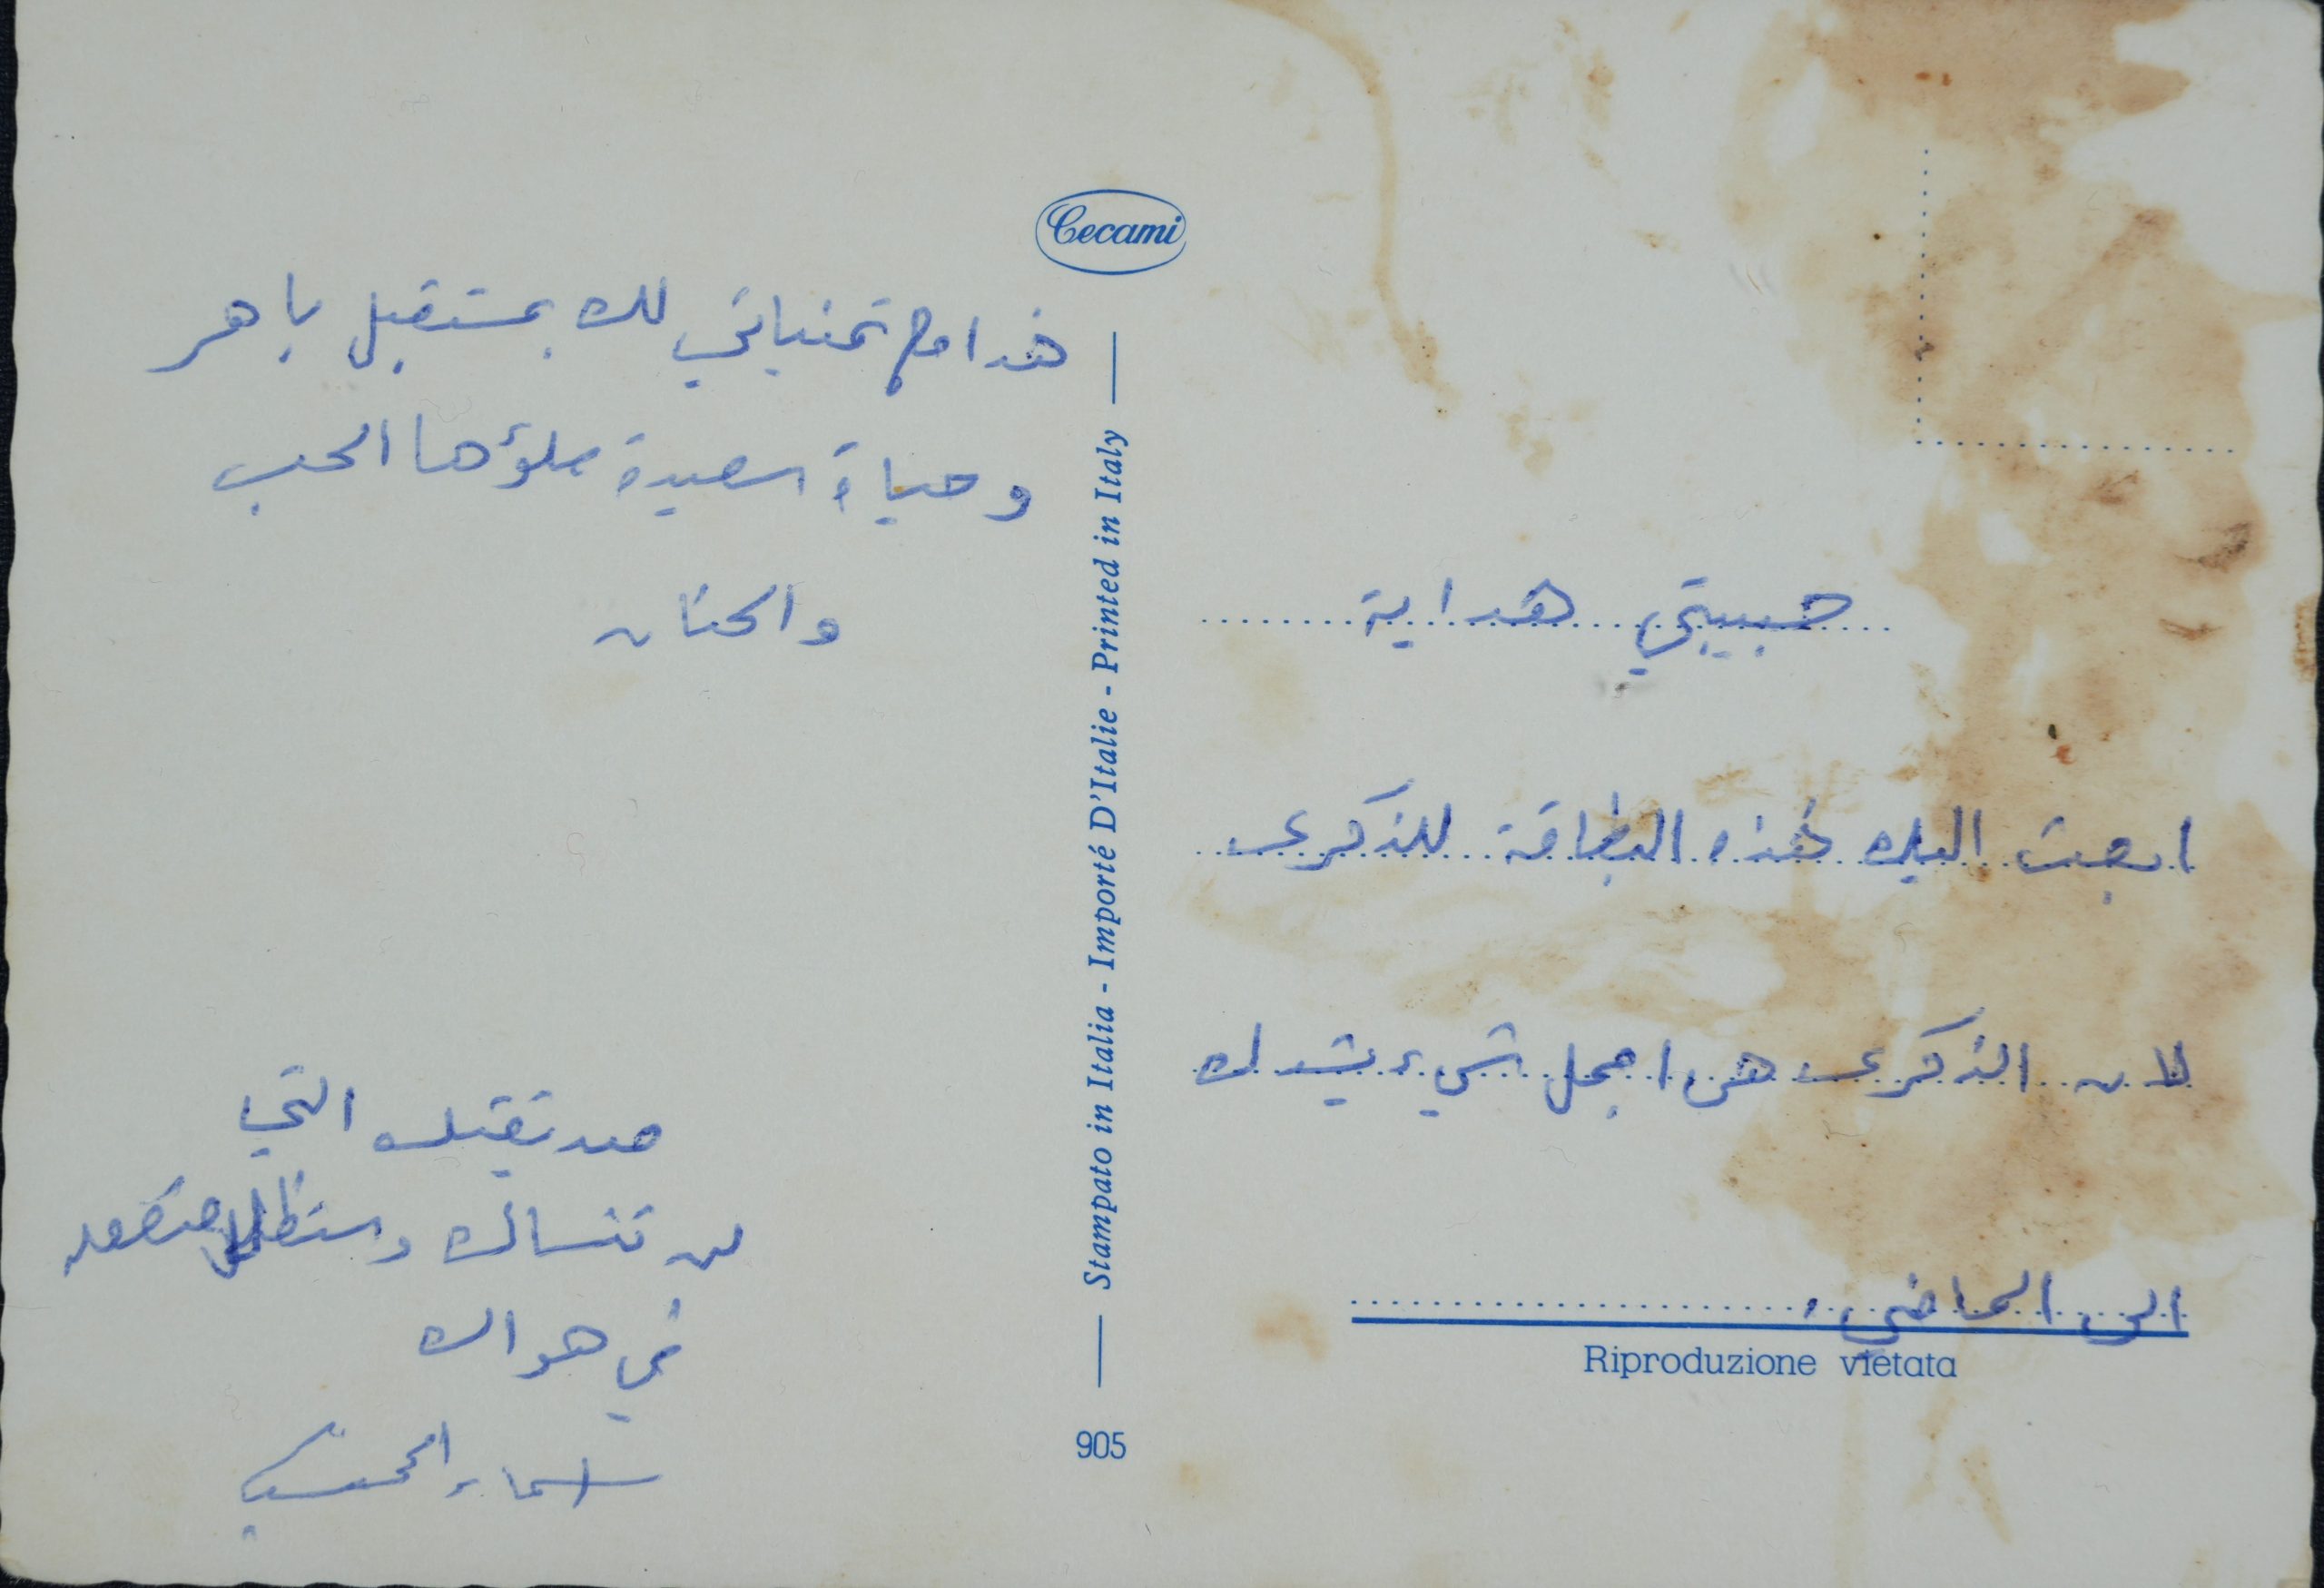 حبيبتي هداية
ابعث اليك هذه البطاقة للذكرى
لان الذكرى هي اجمل شيء يشدك
الى الماضي.
هذا مع تمنياتي لك بمستقبل باهر
وحياة سعيدة ملؤها الحب
والحنان
صديقتك التي
لن تنساك وستظل
في هواك
اسماء
Cecami
Stampato in Italia - Importé D'Italie - Printed in Italy
905
Riproduzione vietata